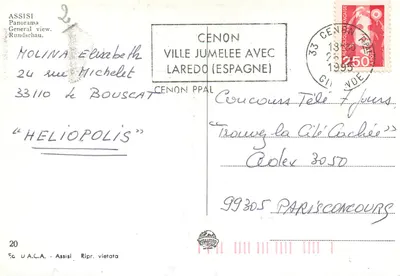 ASSISI
Panorama
General view.
Rundschau.
21
MOLINA Elizabeth
24 rue Michelet
33110 le BOUSCAT
"HELIOPOLIS"
CENON
VILLE JUMELEE AVEC
LAREDO (ESPAGNE)
CENON PPAL
33 CENON PPAL
1993
GIRONDE
2,50
Concours Télé 7 jours
"Trouvez la Cité Cachée"
Cedex 3050
99305 PARISCONCOURS
20
U A.C.A. - Assisi Ripr. vietata